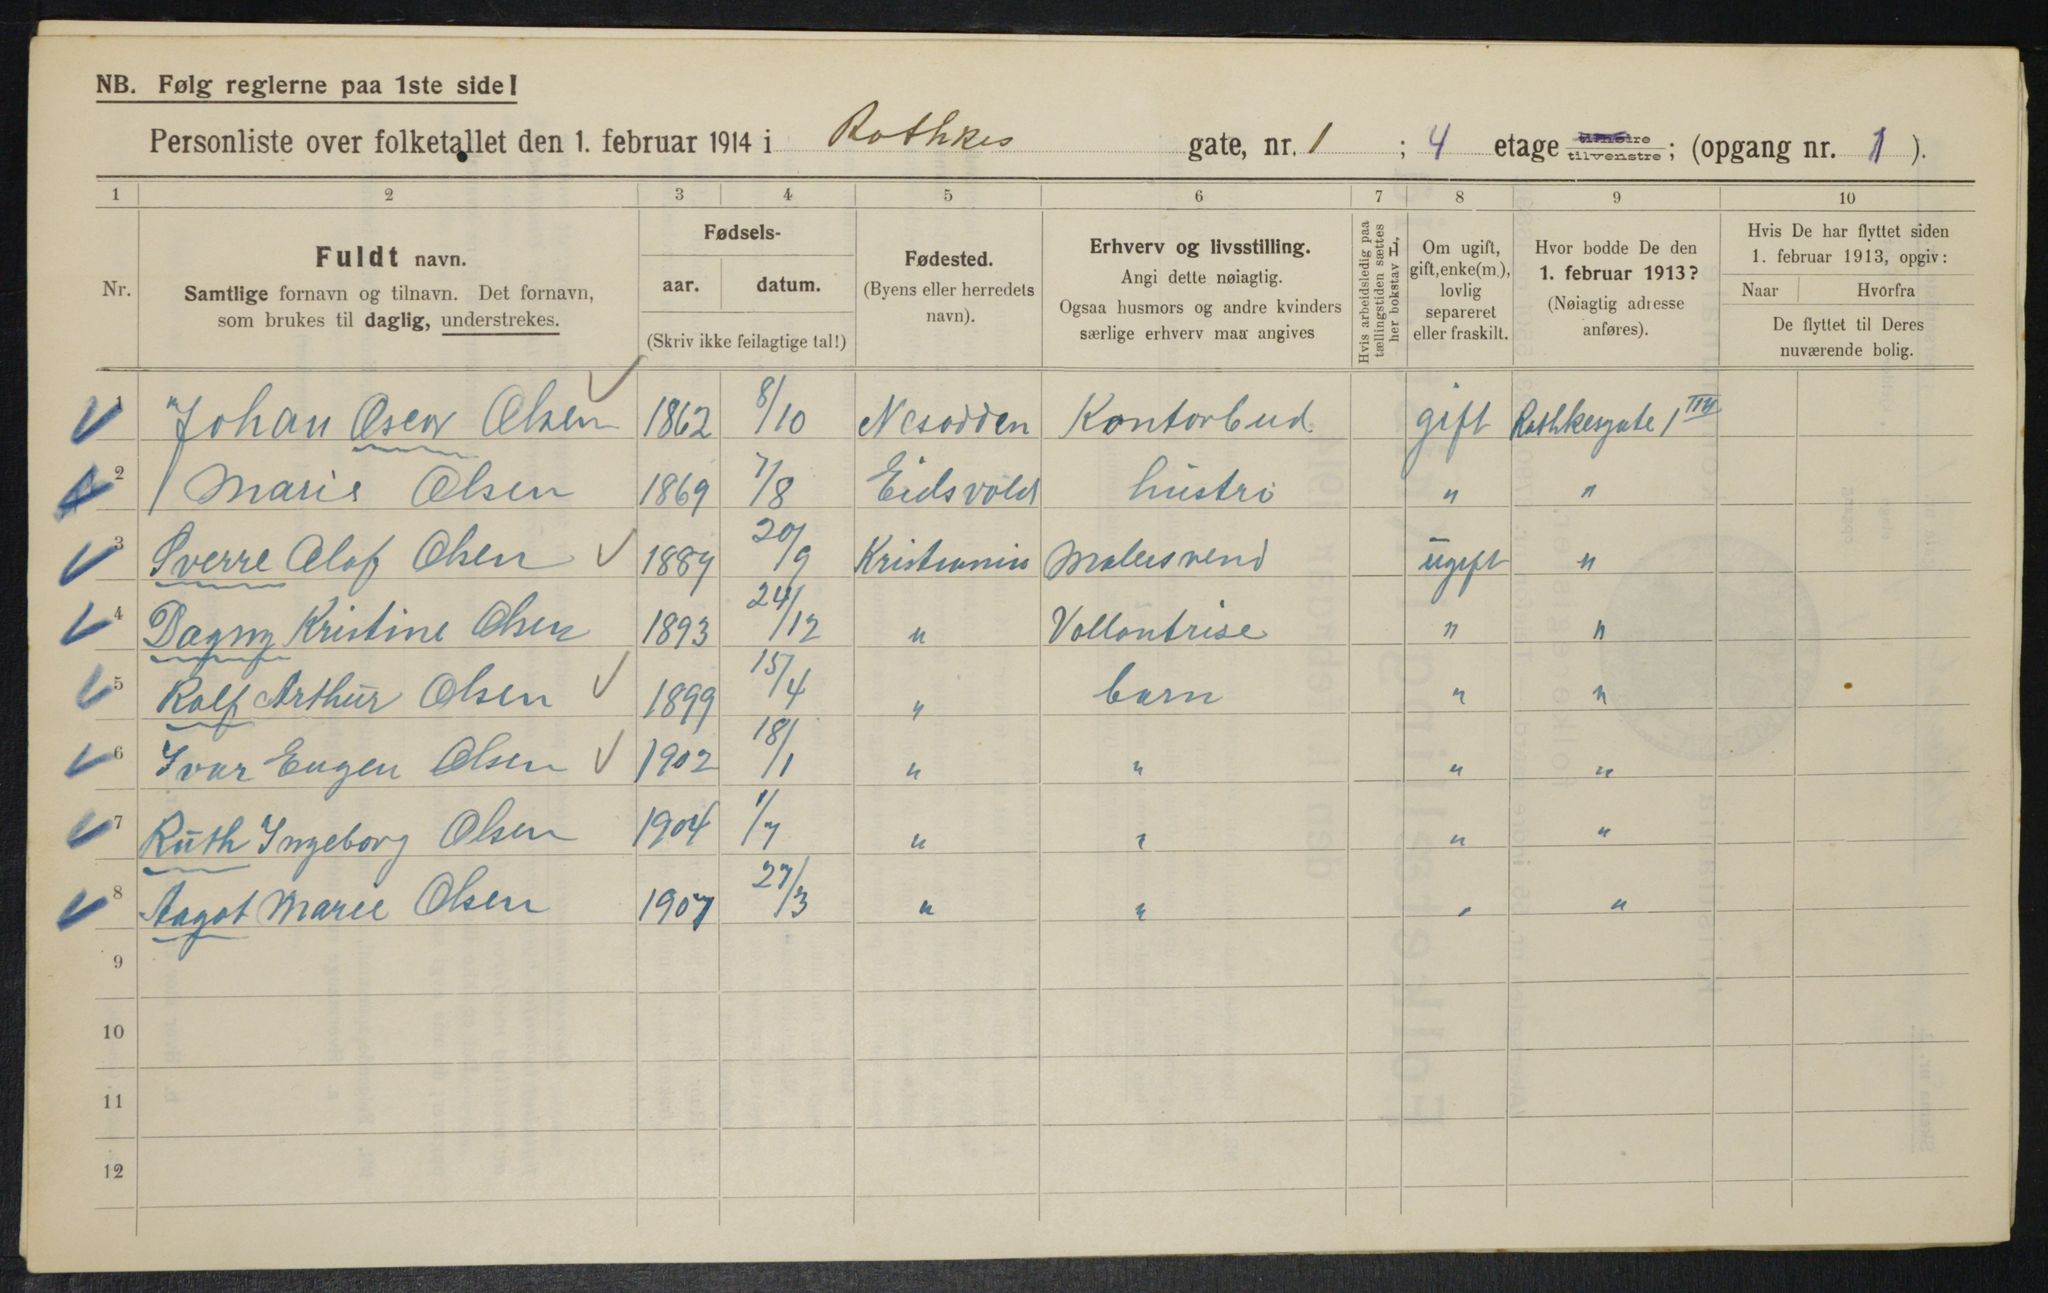 NB. Følg reglerne paa 1ste side!
Personliste over folketallet den 1. februar 1914 i Rathkes gate, nr. 1 ; 4 etage tilhøire tilvenstre ; (opgang nr. 1 ).
1 2 3 4 5 6 7 8 9 10
Nr.
Fuldt navn.
Samtlige fornavn og tilnavn. Det fornavn,
som brukes til daglig, understrekes.
Fødsels-
aar. datum.
(Skriv ikke feilagtige tal!)
Fødested.
(Byens eller herredets
navn).
Erhverv og livsstilling.
Angi dette nøiagtig.
Ogsaa husmors og andre kvinders
særlige erhverv maa angives
Hvis arbeidsledig paa
tællingstiden sættes
her bokstav L.
Om ugift,
gift, enke(m.),
lovlig
separeret
eller fraskilt.
Hvor bodde De den
1. februar 1913?
(Nøiagtig adresse
anføres).
Hvis De har flyttet siden
1. februar 1913, opgiv:
Naar Hvorfra
De flyttet til Deres
nuværende bolig.
1 Johan Oscar Olsen 1862 8/10 Nesodden Kontorbud gift Rathkesgate 1 IV
2 Marie Olsen 1869 7/8 Eidsvold hustru " "
3 Sverre Olaf Olsen 1889 20/9 Kristiania Malersvend ugift "
4 Dagny Kristine Olsen 1893 24/12 " Vollontrise " "
5 Rolf Arthur Olsen 1899 15/4 " barn " "
6 Ivar Eugen Olsen 1902 18/1 " " " "
7 Ruth Ingeborg Olsen 1904 1/7 " " " "
8 Aagot Marie Olsen 1907 27/3 " " " "
9
10
11
12